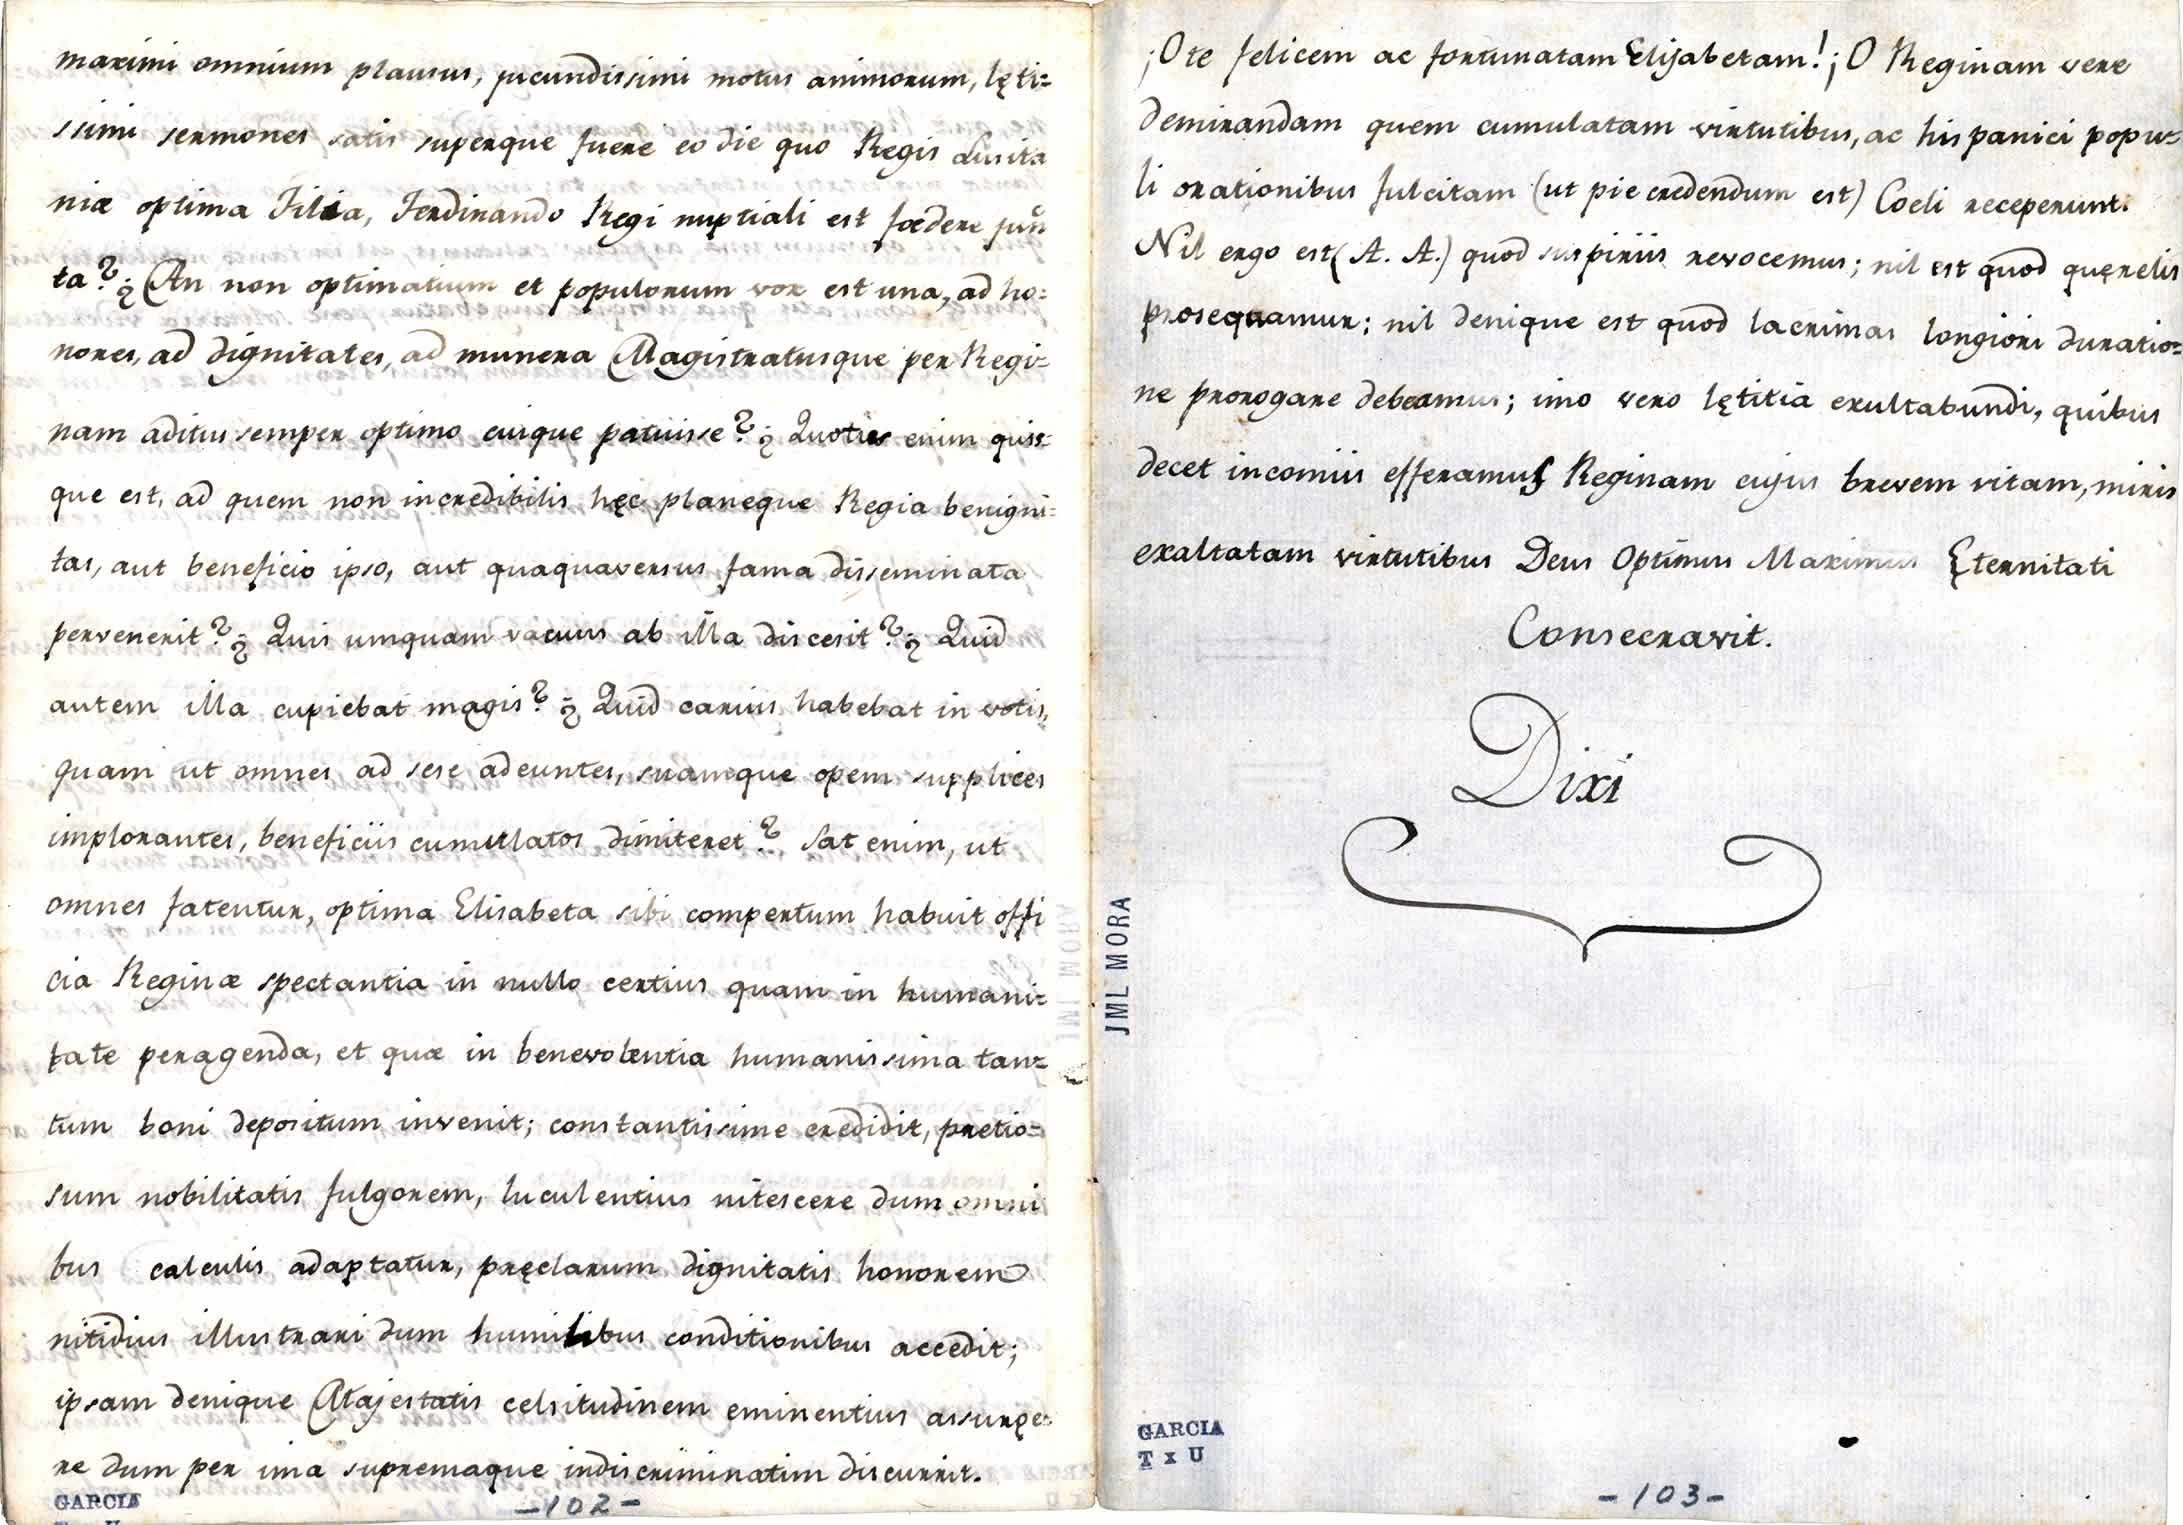 maximi omnium plausus, jucundissimi motus animorum, lęti=
ssimi sermones satis superque fuere eo die quo Regis Lusita
niæ optima Filia, Ferdinando Regi nuptiali est fœdere junc
ta? ¿An non optimatium et populorum vox est una, ad ho=
nores, ad dignitates, ad munera Magistratusque per Regi=
nam aditus semper optimo cuique patuisse? ¿Quotus enim quis=
que est, ad quem non incredibilis hęc planeque Regia benigni=
tas, aut beneficio ipso, aut quaquaversus fama disseminata
pervenerit? ¿Quis umquam vacuus ab illa discesit? ¿Quid
autem illa cupiebat magis? ¿Quid carius habebat in votis,
quam ut omnes ad sese adeuntes, suamque opem supplices
implorantes, beneficiis cumulatos dimiteret? Sat enim, ut
omnes fatentur, optima Elisabeta sibi compertum habuit offi
cia Reginæ spectantia in nullo certius quam in humani=
tate peragenda, et quæ in benevolentia humanissima tan=
tum boni depositum invenit; constantissime credidit, pretio=
sum nobilitatis fulgorem, luculentius nitescere dum omni
bus calculis adaptatur, pręclarum dignitatis honorem
nitidius illustrari dum humilibus conditionibus accedit;
ipsam denique Majestatis celsitudinem eminentius assurge
re dum per ima supremaque indiscriminatim discurrit.
GARCIA
-102-
¡O te felicem ac fortunatam Elisabetam! ¡O Reginam vere
demirandam quem cumulatam virtutibus, ac hispanici popu=
li orationibus fulcitam (ut pie credendum est) Coeli receperunt.
Nil ergo est (A. A.) quod suspiriis revocemus; nil est quod quęrelis
prosequamur; nil denique est quod lacrimas longiori duratio=
ne prorogare debeamus; imo vero lętitia exultabundi, quibus
decet incomiis efferamus Reginam cujus brevem vitam, miris
exaltatam virtutibus Deus Optimus Maximus Ęternitati
Consecravit.
Dixi
JML MORA
GARCIA
T x U
-103-